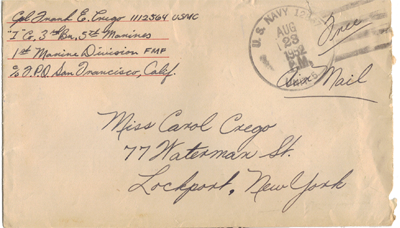 Cpl Frank E. Crego 1112564 USMC
"I" Co, 3rd Bn, 5th Marines
1st Marine Division FMF
% F.P.O. San Francisco, Calif.
U.S. NAVY
AUG
23
1952
Free
Air Mail
Miss Carol Crego
77 Waterman St.
Lockport, New York